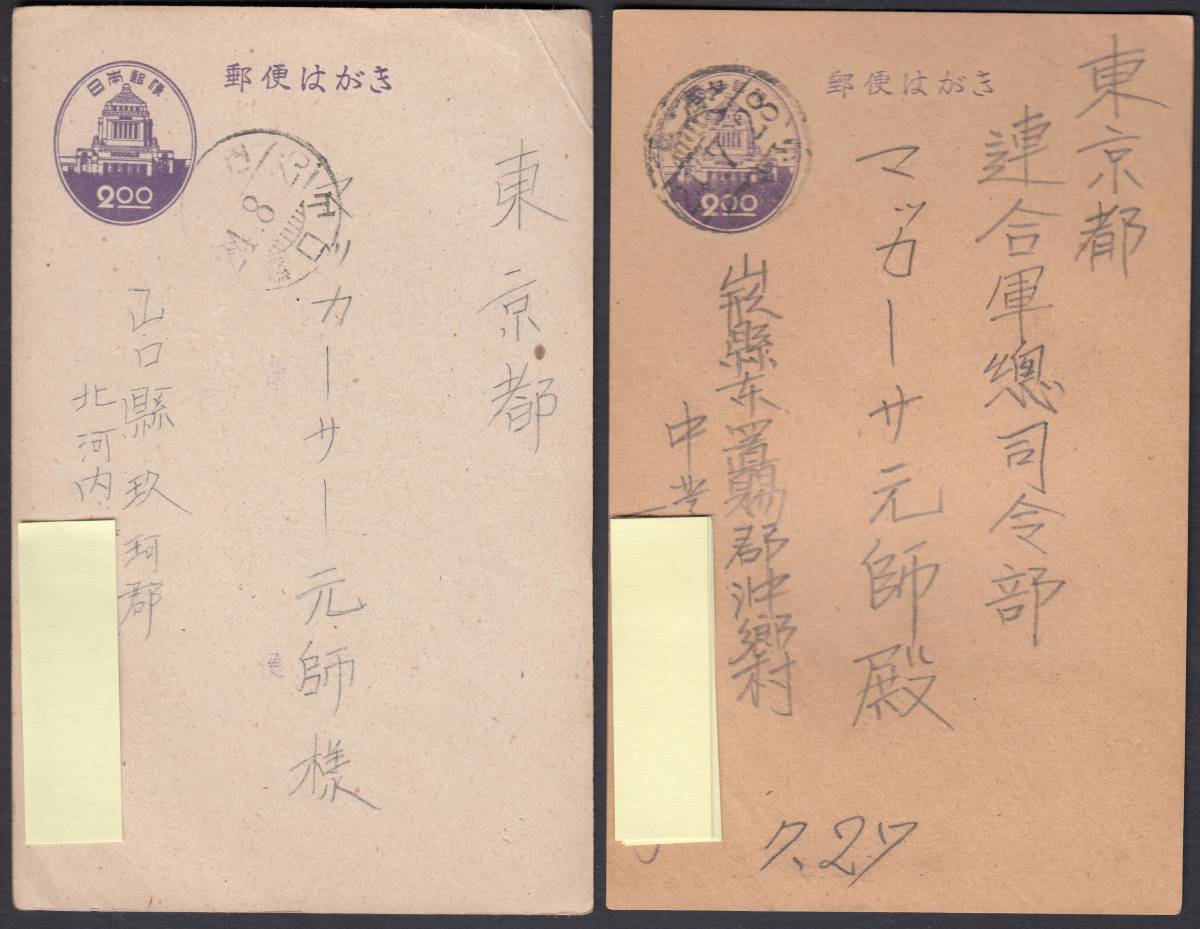 郵便はがき
日本郵便
2.00
東京都
マッカーサー元師様
山口縣玖珂郡
北河内
郵便はがき
2.00
東京都
連合軍總司令部
マッカーサ元師殿
山形縣东置賜郡沖郷村
7.27